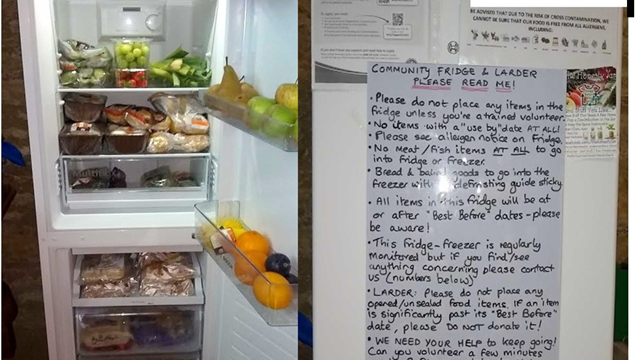 BE ADVISED THAT DUE TO THE RISK OF CROSS CONTAMINATION, WE
CANNOT BE SURE THAT OUR FOOD IS FREE FROM ALL ALLERGENS,
INCLUDING:
COMMUNITY FRIDGE & LARDER
PLEASE READ ME!
• Please do not place any items in the
fridge unless you're a trained volunteer
• No items with a "use by" date AT ALL!
• Please see allergen notice on Fridge.
• No Meat/fish items AT ALL to go
into fridge or freezer.
• Bread & baked goods to go into the
freezer with defrosting guide sticky
• All items in this fridge will be at
or after "Best Before" dates - please
be aware!
• This fridge-freezer is regularly
monitored but if you find/see
anything concerning please contact
us (numbers below)
• LARDER: Please do not place any
opened/unsealed food items. If an item
is significantly past its "Best Before"
date, please DO NOT donate it!
• WE NEED YOUR HELP to keep going!
Can you volunteer a few minutes